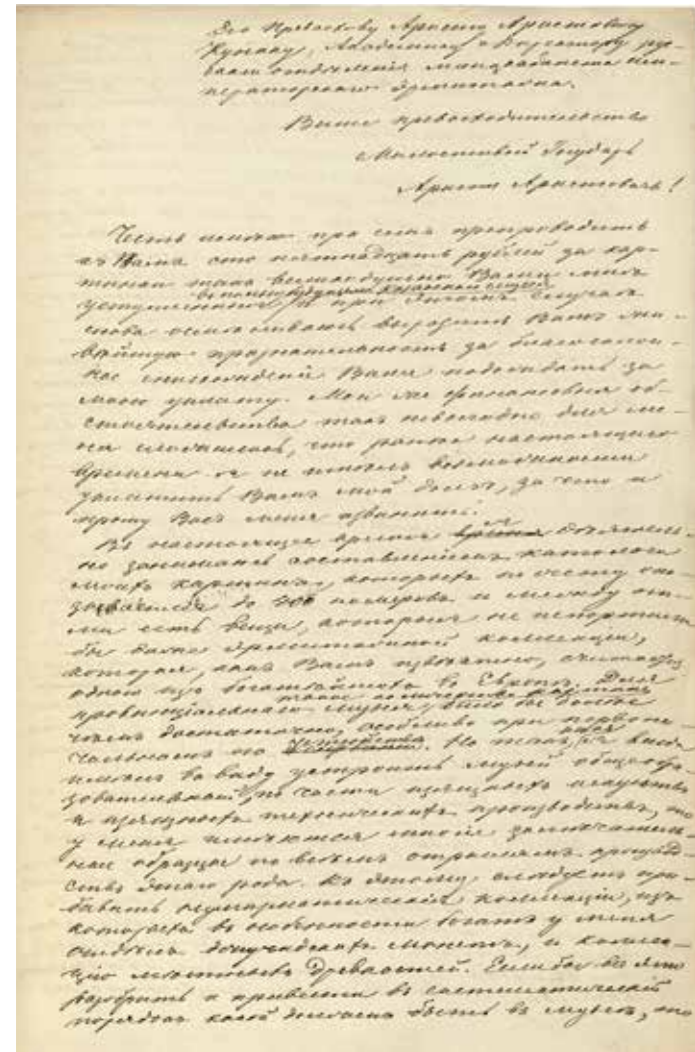 Его Превосхву Аристу Аристовичу
Кунику, Академику и Директору рус-
скаго отделенія минцкабинета Им-
ператорскаго Эрмитажа.
Ваше превосходительство
Милостивый Государь
Аристъ Аристовичъ!
Честь имею при семъ препроводить
къ Вамъ сто пятнадцать рублей за кар-
тины такъ великодушно Вами мне
уступленныя и при этомъ случае
снова осмеливаюсь выразить Вамъ жи-
вейшую признательность за благосклон-
ное снисхожденіе Ваше подождать за
мою уплату. Мои же финансовыя об-
стоятельства такъ невыгодно для ме-
ня сложились, что ранее настоящаго
времени я не имелъ возможности
уплатить Вамъ мой долгъ, за что и
прошу Васъ меня извинить.
Въ настоящее время я деятель-
но занимаюсь составленіемъ каталога
моихъ картинъ, которыхъ по счету ока-
зывается до 200 номеровъ и между эти-
ми есть вещи, которыя не испортили
бы даже Эрмитажной коллекціи,
которая, какъ Вамъ известно, считается
одною изъ богатейшихъ въ Европе. Для
такое количество картинъ
провинціальнаго музея было бы более
чемъ достаточно, особливо при первона-
чальномъ его устройстве. Но такъ какъ я
имелъ въ виду устроить музей общеобра-
зовательный, по части изящныхъ искусствъ
и изящныхъ техническихъ производствъ, то
у меня имеются многіе замечатель-
ные образцы по всемъ отраслямъ производ-
ствъ этаго рода. Къ этому следуетъ при-
бавить нумизматическія коллекціи, изъ
которыхъ въ особенности богатъ у меня
отделъ монетъ, и коллек-
цію местныхъ древностей. Если бы все это
разобрать и привести въ систематическій
порядокъ какой долженъ быть въ музее, то